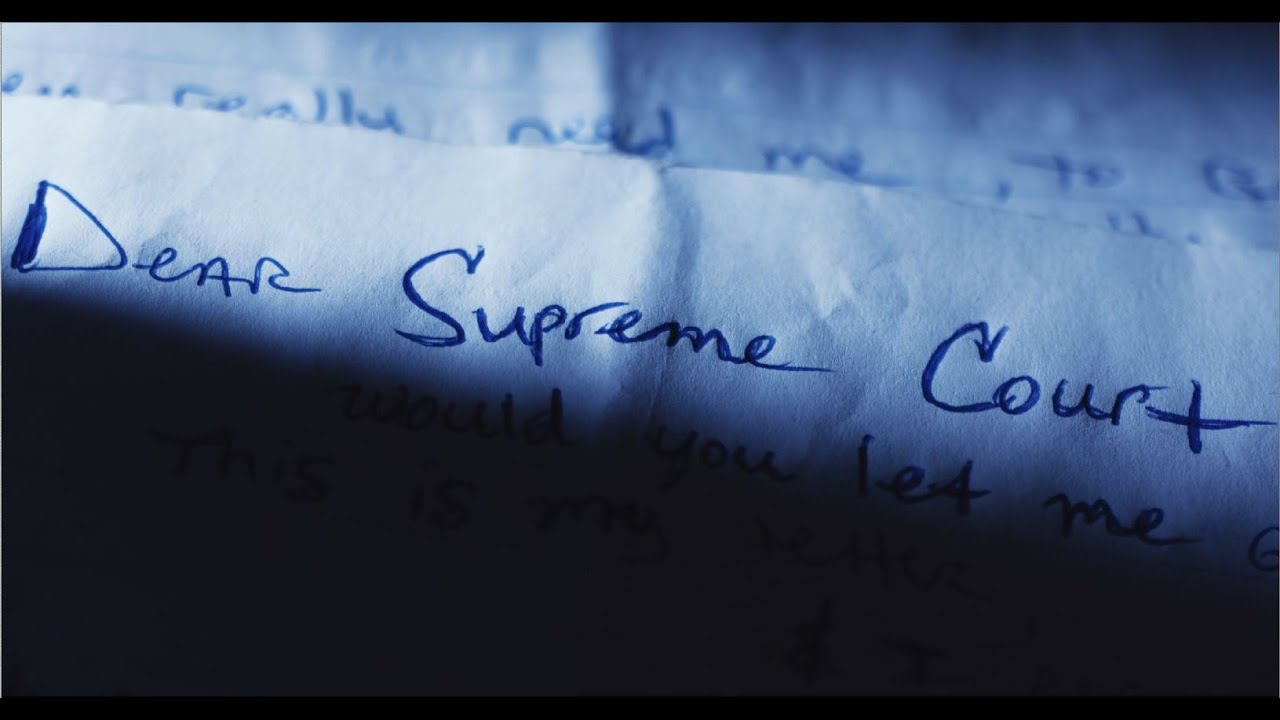 really need me, to
Dear Supreme Court
would you let me
This is my letter
& I